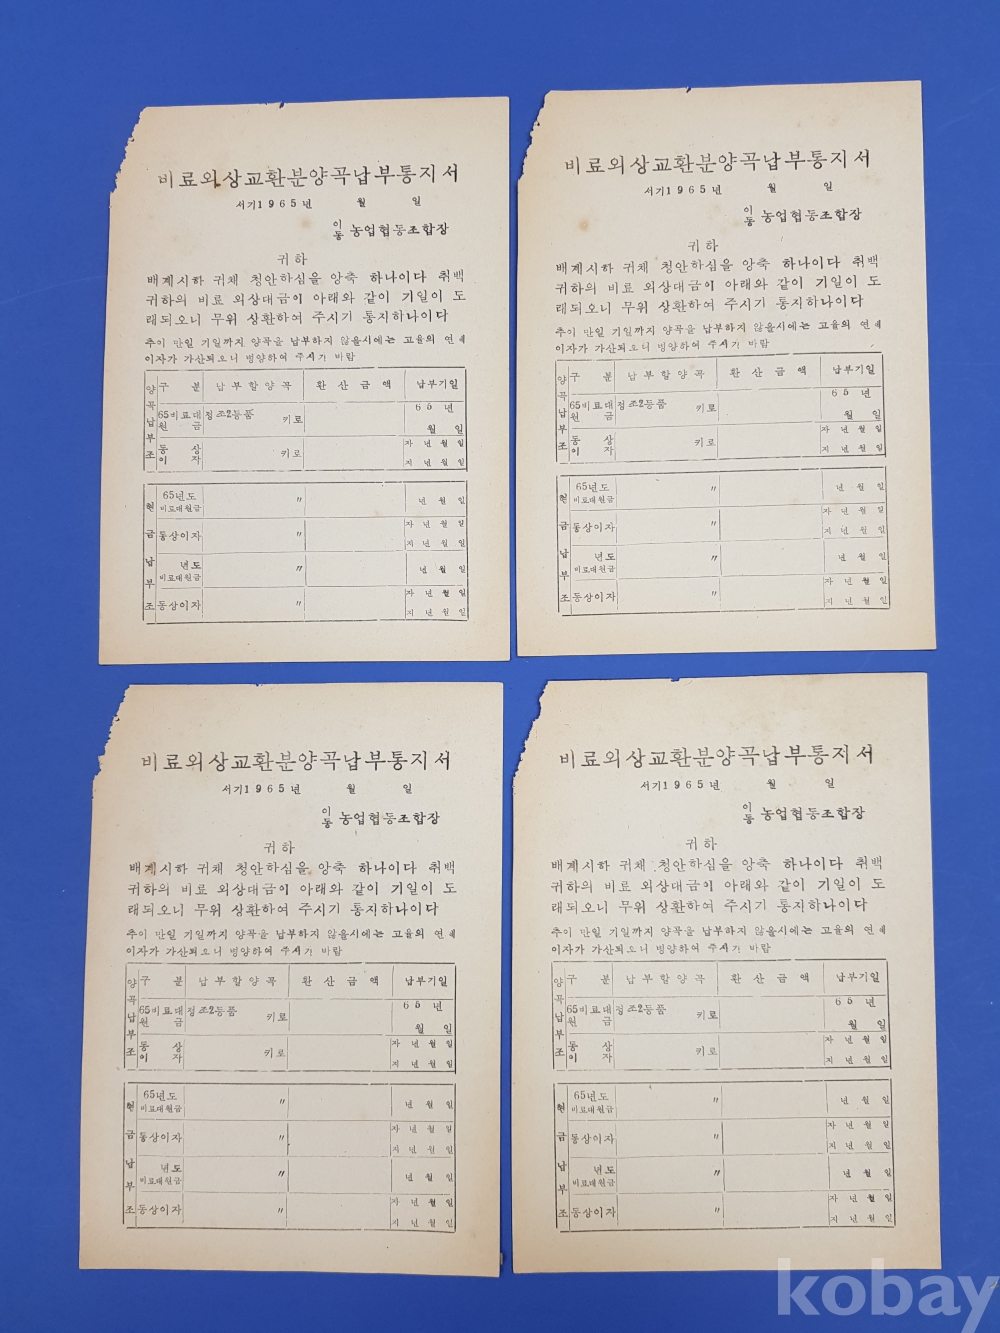 비료외상교환분양곡납부통지서
서기1965년 월 일
이동 농업협동조합장
귀하
배계시하 귀체 청안하심을 앙축 하나이다 취백
귀하의 비료 외상대금이 아래와 같이 기일이 도
래되오니 무위 상환하여 주시기 통지하나이다
추이 만일 기일까지 양곡을 납부하지 않을시에는 고율의 연체
이자가 가산되오니 병양하여 주시기 바람
양곡납부조
구분 납부할양곡 환산금액 납부기일
65비료대원금 정조2등품 키로 65년 월 일
동상이자 키로 자 년 월 일
지 년 월 일
현금납부조
65년도비료대원금 〃 년 월 일
동상이자 〃 자 년 월 일
지 년 월 일
년도비료대원금 〃 년 월 일
동상이자 〃 자 년 월 일
지 년 월 일
비료외상교환분양곡납부통지서
서기1965년 월 일
이동 농업협동조합장
귀하
배계시하 귀체 청안하심을 앙축 하나이다 취백
귀하의 비료 외상대금이 아래와 같이 기일이 도
래되오니 무위 상환하여 주시기 통지하나이다
추이 만일 기일까지 양곡을 납부하지 않을시에는 고율의 연체
이자가 가산되오니 병양하여 주시기 바람
양곡납부조
구분 납부할양곡 환산금액 납부기일
65비료대원금 정조2등품 키로 65년 월 일
동상이자 키로 자 년 월 일
지 년 월 일
현금납부조
65년도비료대원금 〃 년 월 일
동상이자 〃 자 년 월 일
지 년 월 일
년도비료대원금 〃 년 월 일
동상이자 〃 자 년 월 일
지 년 월 일
비료외상교환분양곡납부통지서
서기1965년 월 일
이동 농업협동조합장
귀하
배계시하 귀체 청안하심을 앙축 하나이다 취백
귀하의 비료 외상대금이 아래와 같이 기일이 도
래되오니 무위 상환하여 주시기 통지하나이다
추이 만일 기일까지 양곡을 납부하지 않을시에는 고율의 연체
이자가 가산되오니 병양하여 주시기 바람
양곡납부조
구분 납부할양곡 환산금액 납부기일
65비료대원금 정조2등품 키로 65년 월 일
동상이자 키로 자 년 월 일
지 년 월 일
현금납부조
65년도비료대원금 〃 년 월 일
동상이자 〃 자 년 월 일
지 년 월 일
년도비료대원금 〃 년 월 일
동상이자 〃 자 년 월 일
지 년 월 일
비료외상교환분양곡납부통지서
서기1965년 월 일
이동 농업협동조합장
귀하
배계시하 귀체 청안하심을 앙축 하나이다 취백
귀하의 비료 외상대금이 아래와 같이 기일이 도
래되오니 무위 상환하여 주시기 통지하나이다
추이 만일 기일까지 양곡을 납부하지 않을시에는 고율의 연체
이자가 가산되오니 병양하여 주시기 바람
양곡납부조
구분 납부할양곡 환산금액 납부기일
65비료대원금 정조2등품 키로 65년 월 일
동상이자 키로 자 년 월 일
지 년 월 일
현금납부조
65년도비료대원금 〃 년 월 일
동상이자 〃 자 년 월 일
지 년 월 일
년도비료대원금 〃 년 월 일
동상이자 〃 자 년 월 일
지 년 월 일
kobay